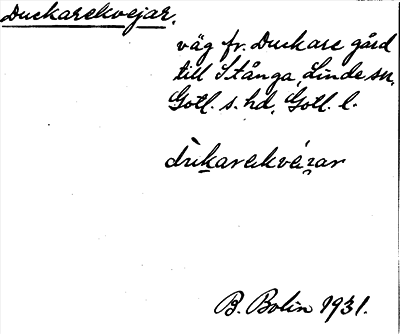 Duckarekvejar.
väg fr. Duckare gård
till Stånga, Linde sn,
Gotl. s. hd, Gotl. l.
dùkarekvéʒar
B. Bolin 1931.